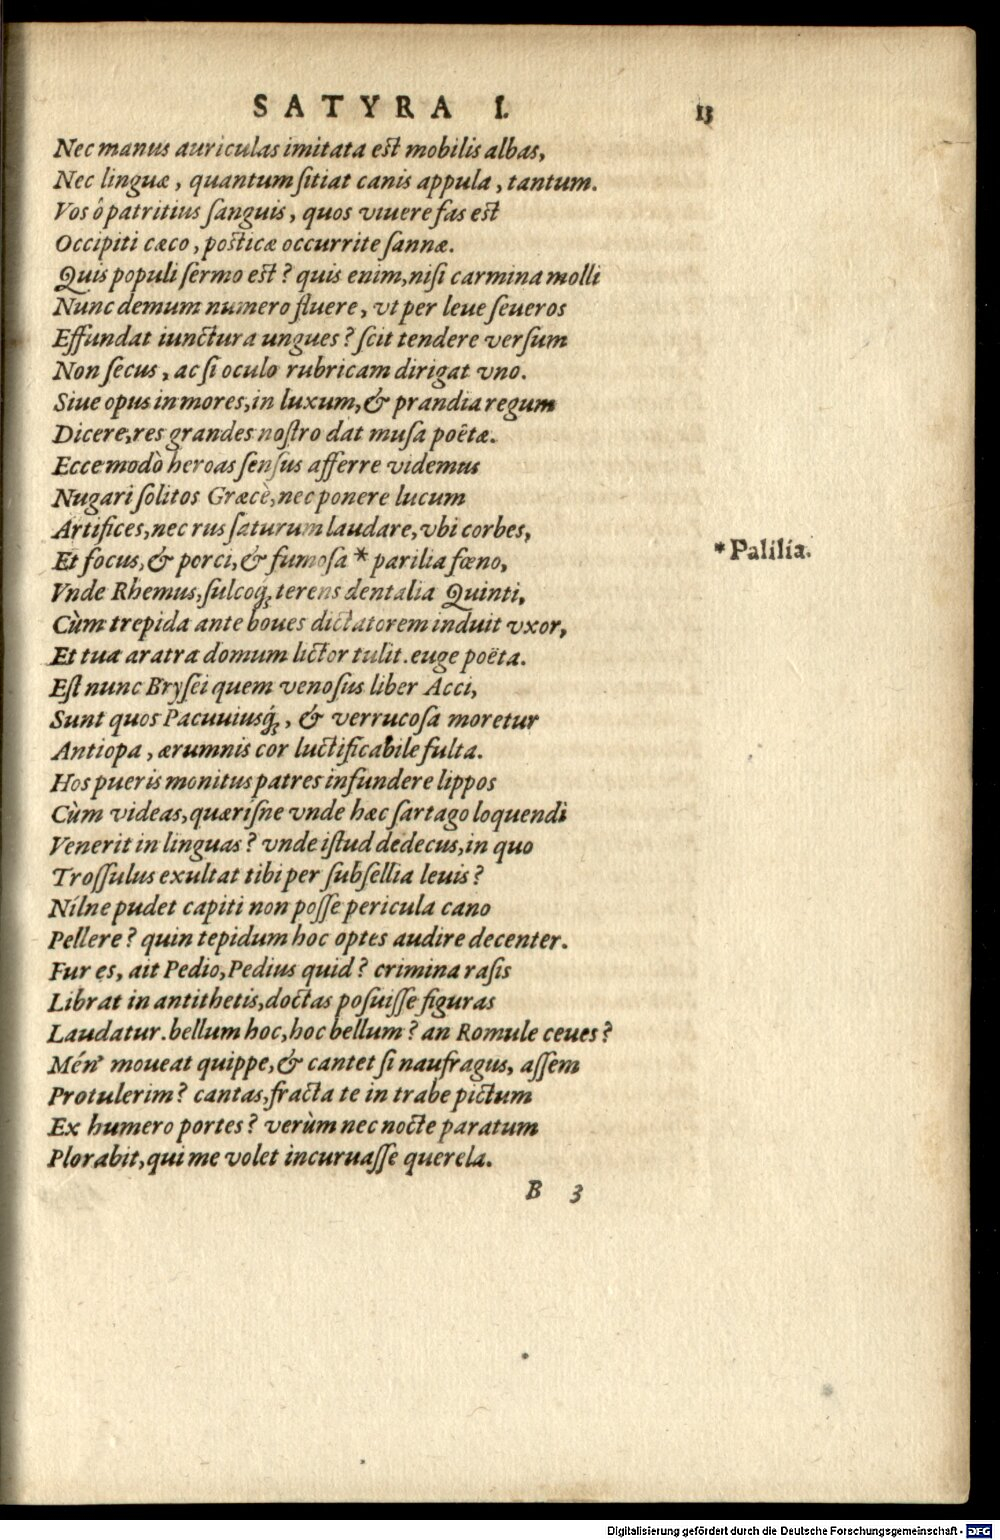 SATYRA I. 13
Nec manus auriculas imitata est mobilis albas,
Nec linguæ, quantum ſitiat canis appula, tantum.
Vos ô patritius ſanguis, quos viuere fas est
Occipiti cæco, posticæ occurrite ſannæ.
Quis populi ſermo est? quis enim, niſi carmina molli
Nunc demum numero fluere, vt per leue ſeueros
Effundat iunctura ungues? ſcit tendere verſum
Non ſecus, ac ſi oculo rubricam dirigat vno.
Siue opus in mores, in luxum, & prandia regum
Dicere, res grandes noſtro dat muſa poëtæ.
Ecce modò heroas ſenſus afferre videmus
Nugari ſolitos Græcè, nec ponere lucum
Artifices, nec rus ſaturum laudare, vbi corbes,
Et focus, & porci, & fumoſa * parilia fœno,
*Palilia.
Vnde Rhemus, ſulcoq́; terens dentalia Quinti,
Cùm trepida ante boues dictatorem induit vxor,
Et tua aratra domum lictor tulit. euge poëta.
Eſt nunc Bryſei quem venoſus liber Acci,
Sunt quos Pacuuiusq́;, & verrucoſa moretur
Antiopa, ærumnis cor luctificabile fulta.
Hos pueris monitus patres infundere lippos
Cùm videas, quæríſne vnde hæc ſartago loquendi
Venerit in linguas? vnde iſtud dedecus, in quo
Troſſulus exultat tibi per ſubſellia leuis?
Nílne pudet capiti non poſſe pericula cano
Pellere? quin tepidum hoc optes audire decenter.
Fur es, ait Pedio, Pedius quid? crimina raſis
Librat in antithetis, doctas poſuiſſe figuras
Laudatur. bellum hoc, hoc bellum? an Romule ceues?
Mén' moueat quippe, & cantet ſi naufragus, aſſem
Protulerim? cantas, fracta te in trabe pictum
Ex humero portes? verùm nec nocte paratum
Plorabit, qui me volet incuruaſſe querela.
B 3
Digitalisierung gefördert durch die Deutsche Forschungsgemeinschaft - DFG